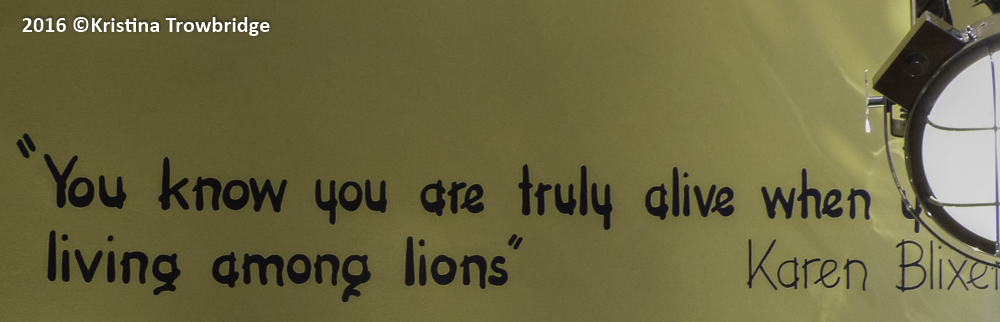 2016 ©Kristina Trowbridge
"You know you are truly alive when
living among lions"
Karen